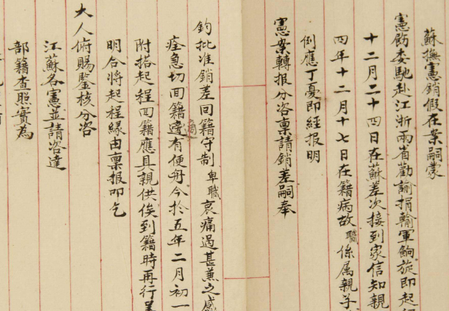 蘇撫憲銷假在案嗣蒙
憲飭委馳赴江浙兩省勸諭捐輸軍餉旋即起
十二月二十四日在蘇差次接到家信知親
四年十二月十七日在籍病故職係属親子
例應丁憂即經报明
憲案轉报分咨稟請銷差嗣奉
鈞批准銷差回籍守制卑職哀痛過甚兼之感
痊急切回籍適有便舟今於五年二月初一
附搭起程回籍應具親供俟到籍時再行呈
明合將起程缘由稟报叩乞
大人俯賜鑒核分咨
江蘇各憲並請咨達
部籍查照實為